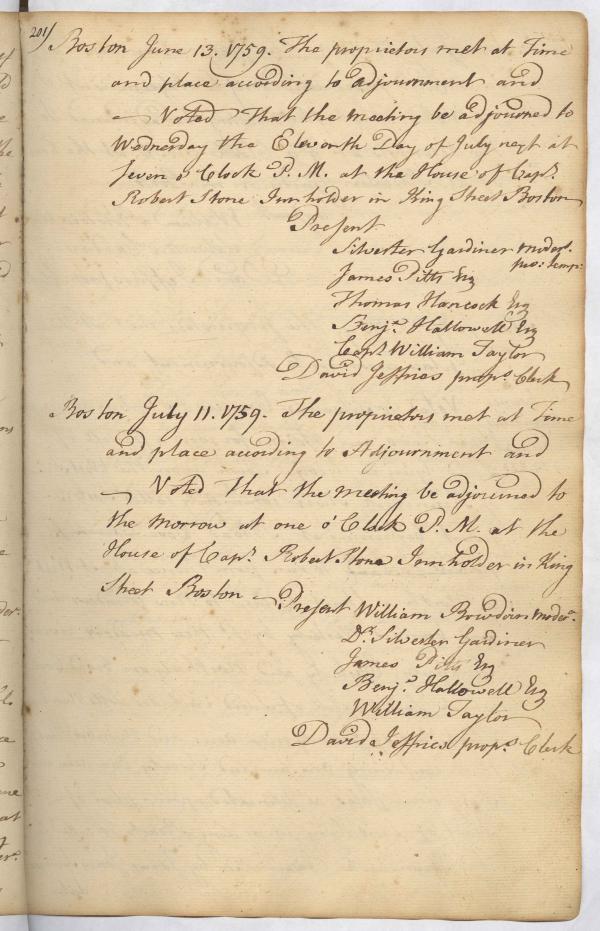 201/
Boston June 13. 1759. The proprietors met at Time
and place according to adjournment and
– Voted That the meeting be adjourned to
Wednesday the Eleventh Day of July next at
Seven o'Clock P.M. at the House of Capt.
Robert Stone Innholder in King Street Boston
Present
Silvester Gardiner moder.
pro: temp:
James Pitts Esq
Thomas Hancock Esq
Benj.a Hallowell Esq
Capt. William Taylor
David Jeffries prop.s Clerk
Boston July 11. 1759. The proprietors met at Time
and place according to Adjournment and
– Voted That the meeting be adjourned to
the morrow at one o'Clock P.M. at the
House of Capt. Robert Stone Innholder in King
Street Boston – Present William Bowdoin moder.
Dr. Silvester Gardiner
James Pitts Esq
Benj.a Hallowell Esq
William Taylor
David Jeffries prop.s Clerk